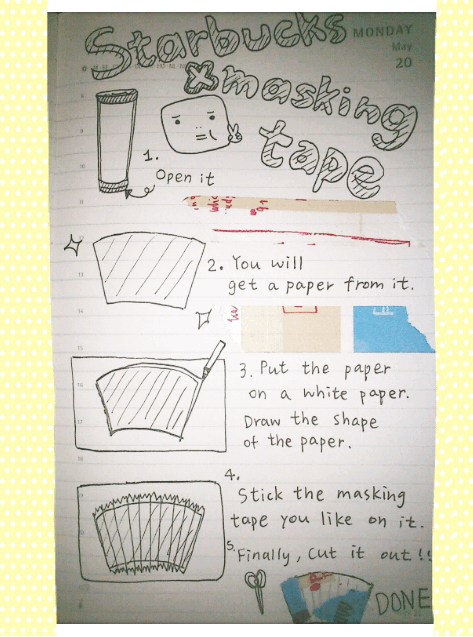 Starbucks
MONDAY
May
20
×masking
tape
1.
Open it
2. You will
get a paper from it.
3. Put the paper
on a white paper.
Draw the shape
of the paper.
4.
Stick the masking
tape you like on it.
5. Finally, cut it out!!
DONE